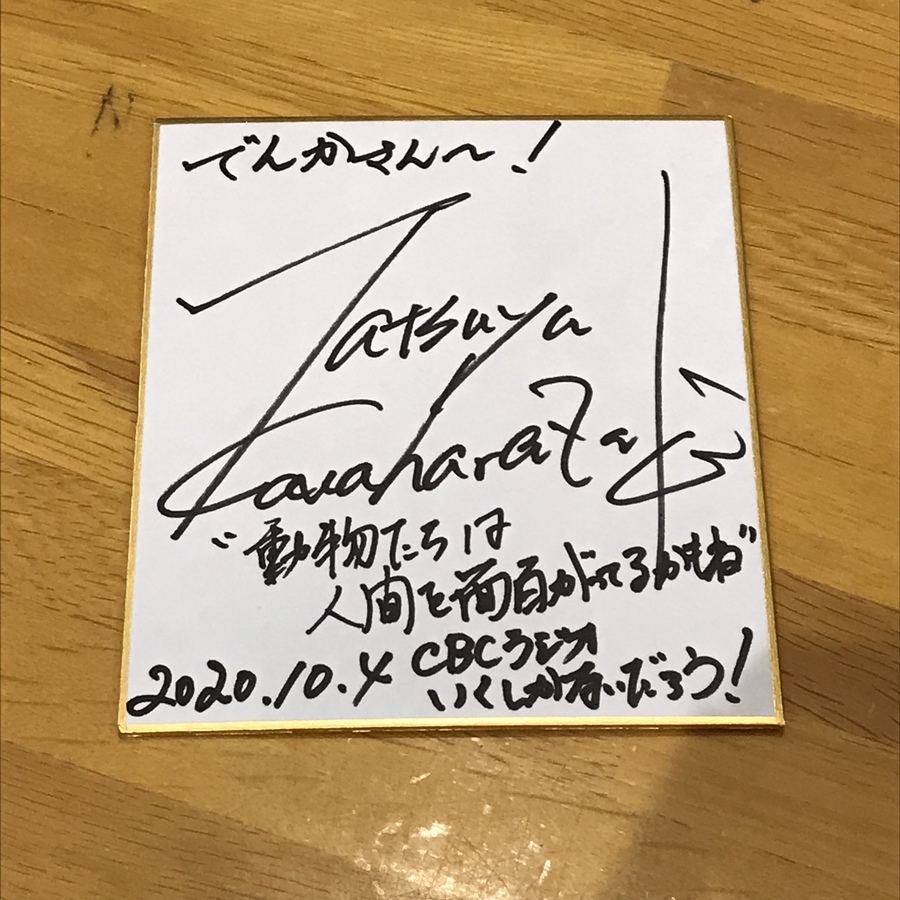 でんかさん〜！
Tatsuya
Kawahara
"動物たちは
人間を面白がってるかもね"
2020.10.4 CBCラジオ
いくしかないだろう！